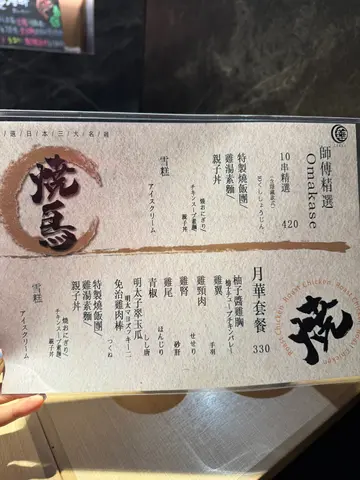 選日本三大名雞
燒鳥
師傅精選
Omakase
420
10串精選
特製燒飯團/
雞湯素麵/
親子丼
焼おにぎり/
チキンスープ素麺/
親子丼
雪糕
アイスクリーム
月華套餐
330
柚子醬雞胸
雞翼
手羽
雞頸肉
せせり
雞腎
砂肝
雞尾
ぼんじり
青椒
しし唐
明太子翠玉瓜
明太マヨズッキーニ
免治雞肉棒
つくね
特製燒飯團/
雞湯素麵/
親子丼
焼おにぎり/
チキンスープ素麺/
親子丼
雪糕
アイスクリーム
燒